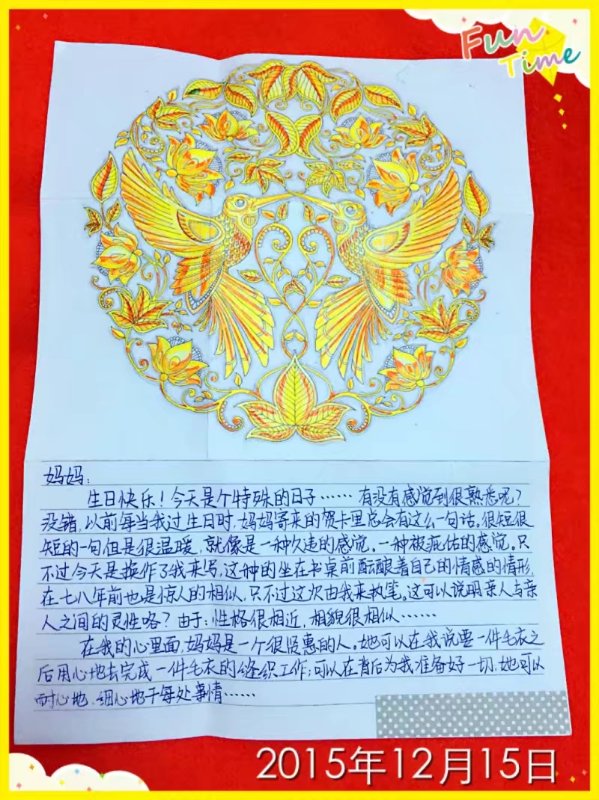 Fun
Time
妈妈：
生日快乐！今天是个特殊的日子……有没有感觉到很熟悉呢？
没错，以前每当我过生日时，妈妈寄来的贺卡里总会有这么一句话，很短很
短的一句但是很温暖，就像是一种久违的感觉，一种被疼的感觉。只
不过今天是换作了我来写，这种的坐在书桌前酝酿着自己的情感的情形，
在七八年前也是惊人的相似，只不过这次由我来执笔，这可以说明亲人与亲
人之间的灵性咯？由于：性格很相近，相貌很相似……
在我的心里面，妈妈是一个很贤惠的人。她可以在我说要一件毛衣之
后用心地去完成一件毛衣的缝织工作；可以在背后为我准备好一切，她可以
耐心地、细心地干每处事情……
2015年12月15日